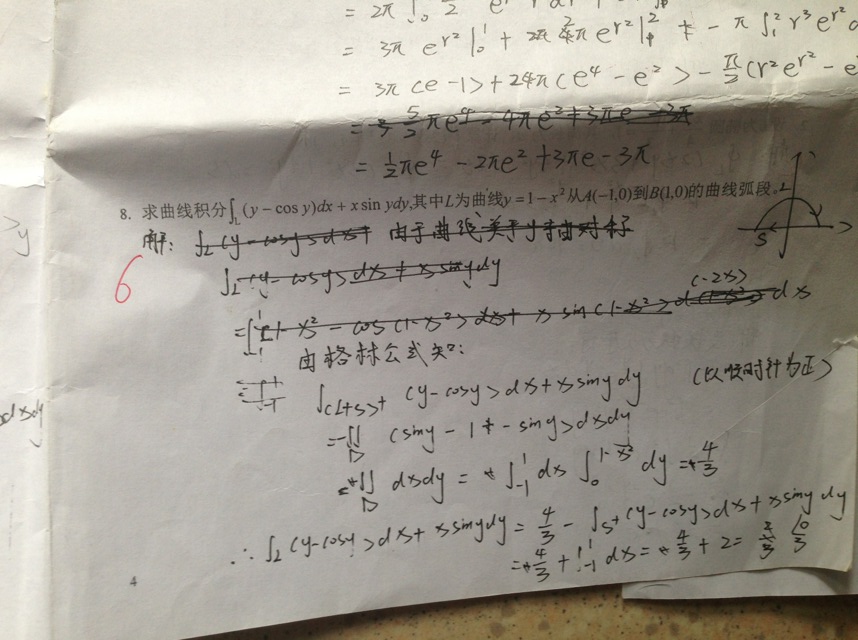 = 2π ∫₀
= 3π e^{r²}|₀¹ + 2π
= 3π (e-1) + 24π(e⁴ - e²) - π/3 (r²e^{r²} - e
= ½πe⁴ - 2πe² + 3πe - 3π
8. 求曲线积分∫_L (y - cos y)dx + x sin ydy,其中L为曲线y = 1 - x²从A(-1,0)到B(1,0)的曲线弧段。
L
S
解: ∫_L (y-cosy)dx+ 由于曲线关于y轴对称
∫_L (y-cosy)dx + xsinydy
(-2x)
=∫₋₁¹ [1-x² - cos(1-x²)]dx + x sin(1-x²) d(1-x²) dx
由格林公式知:
∫_{(L+S)+} (y-cosy)dx+xsinydy (以顺时针为正)
=-∬_D (siny - 1 - siny)dxdy
=∬_D dxdy = ∫₋₁¹ dx ∫₀^{1-x²} dy = 4/3
∴ ∫_L (y-cosy)dx + xsinydy = 4/3 - ∫_{S+} (y-cosy)dx + xsinydy
= 4/3 + ∫₋₁¹ dx = 4/3 + 2 = 10/3
6
4
>y
dxdy